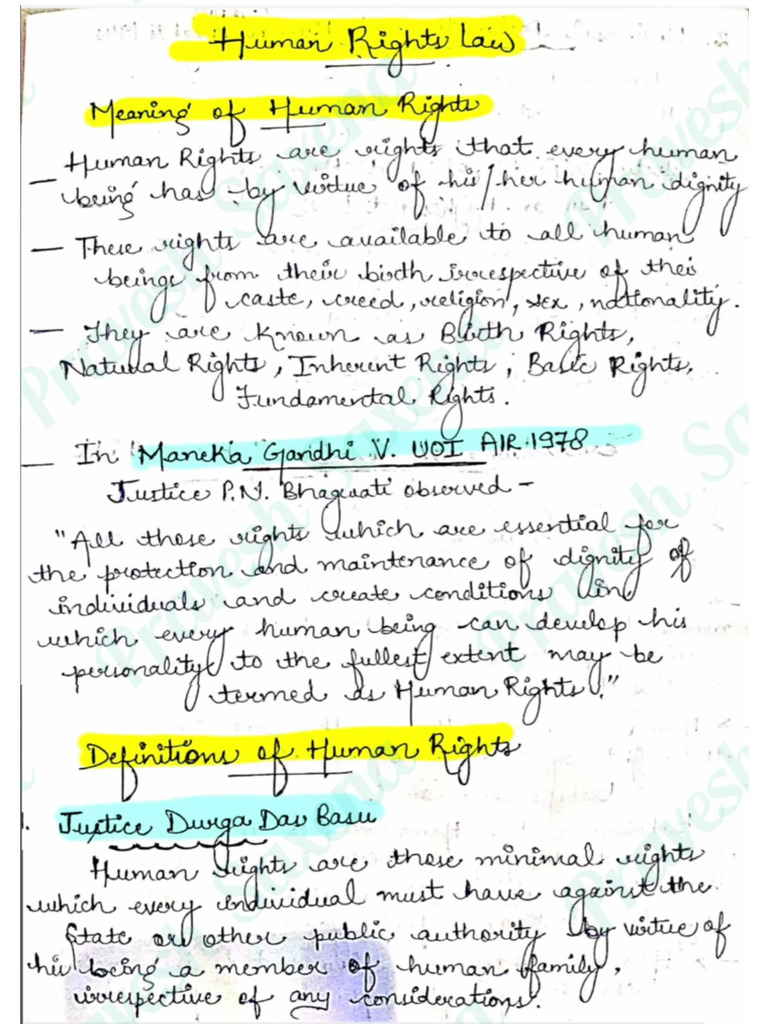 Human Rights Law
Meaning of Human Rights
— Human Rights are rights that every human
being has by virtue of his/her human dignity
— These rights are available to all human
beings from their birth irrespective of their
caste, creed, religion, sex, nationality.
— They are known as Birth Rights,
Natural Rights, Inherent Rights, Basic Rights,
Fundamental Rights.
— In Maneka Gandhi V. UOI AIR 1978
Justice P.N. Bhagwati observed –
"All those rights which are essential for
the protection and maintenance of dignity of
individuals and create conditions in
which every human being can develop his
personality to the fullest extent may be
termed as Human Rights."
Definitions of Human Rights
1. Justice Durga Das Basu
Human rights are those minimal rights
which every individual must have against the
State or other public authority by virtue of
his being a member of human family,
irrespective of any considerations.
Pravesh Saxena